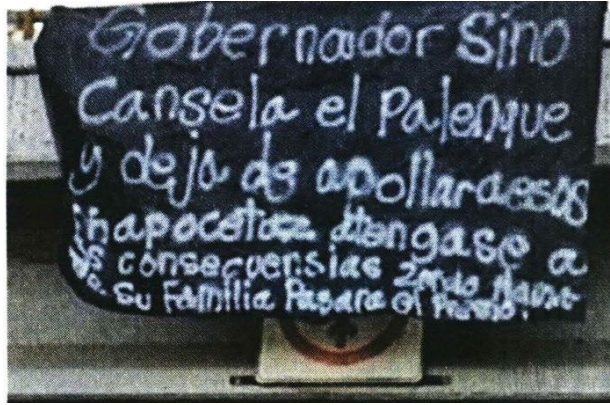 Gobernador Sino
Cansela el Palenque
y deja de apollar a esos
chapocotas atengase a
consecuensias
su Familia Pasara